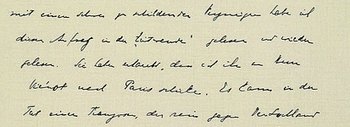 mit einem schwer zu schildernden Vergnügen habe ich
diesen Aufsatz in der gelesen und wieder
gelesen. Sie haben erlaubt, dass ich ihn an
nach Paris schicke. Es kann in der
Tat einen Franzosen, der rein gegen Deutschland